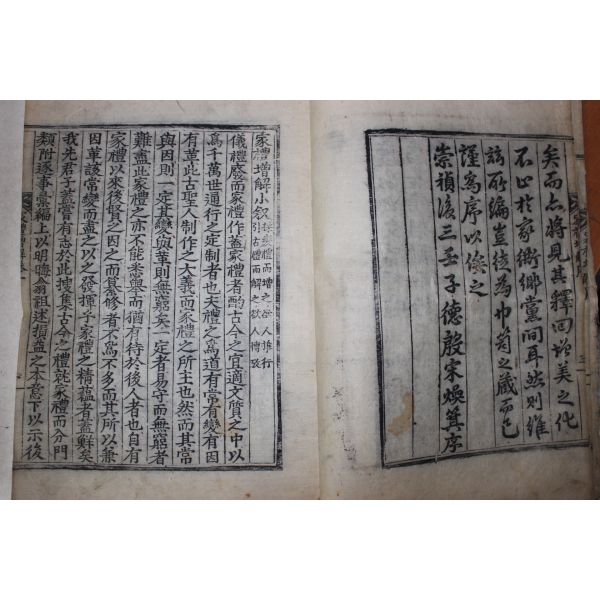 矣而亦將見其釋回增美之化
不止於家術鄉黨間耳然則維
玆所編豈徒為巾笥之藏而已
謹為序以俟之
崇禎後三壬子德殷宋煥箕序
家禮增解小叙
禮而增之欲人推行
引古禮而解之欲人博攷
儀禮廢而家禮作蓋家禮者酌古今之宜適文質之中以
爲千萬世通行之定制者也夫禮之爲道有常有變有因
有革此古聖人制作之大義而家禮之所主也然而其常
與因則一定其變與革則無窮矣一定者易守而無窮者
難盡此家禮之亦不能悉擧而猶有待於後人者也自有
家禮以來後賢之因之而纂修者不爲不多而其所以兼
因革該常變而盡之以之發揮乎家禮之精蘊者蓋鮮矣
我先君子蓋嘗有志於此搜集古今之禮就家禮而分門
類附逐事彙編上以明晦翁祖述損益之本意下以示後